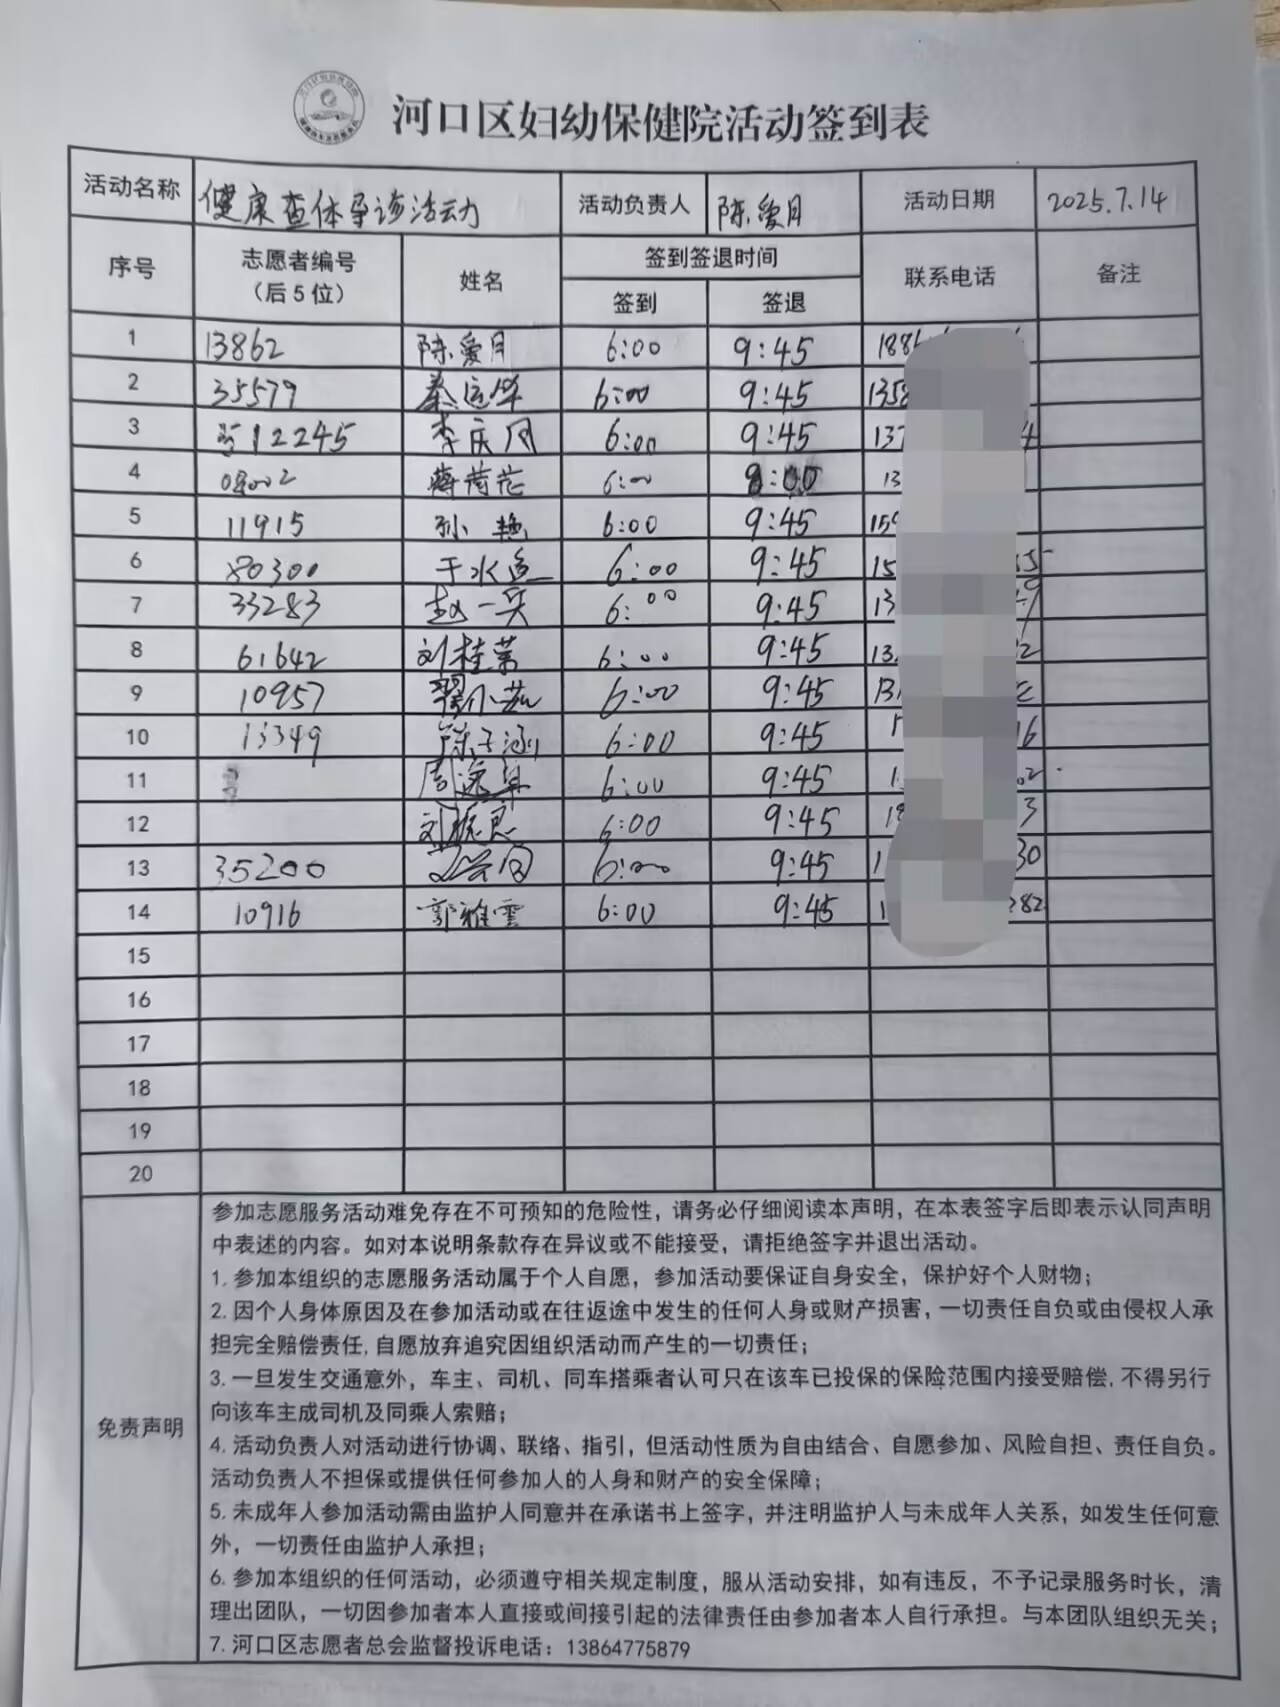 河口区妇幼保健院活动签到表
活动名称 健康查体导诊活动 活动负责人 陈爱月 活动日期 2025.7.14
序号 志愿者编号（后5位） 姓名 签到签退时间 联系电话 备注
签到 签退
1 13862 陈爱月 6:00 9:45
2 35579 秦运华 6:00 9:45
3 12245 李庆风 6:00 9:45
4 6:00
5 11915 孙艳 6:00 9:45
6 80300 于水 6:00 9:45
7 33283 赵一 6:00 9:45
8 61642 刘桂 6:00 9:45
9 10957 翟小 6:00 9:45
10 13349 陈子涵 6:00 9:45
11 周 6:00 9:45
12 刘 6:00 9:45
13 35200 6:00 9:45
14 10916 郭雅雲 6:00 9:45
15
16
17
18
19
20
免责声明
参加志愿服务活动难免存在不可预知的危险性，请务必仔细阅读本声明，在本表签字后即表示认同声明
中表述的内容。如对本说明条款存在异议或不能接受，请拒绝签字并退出活动。
1.参加本组织的志愿服务活动属于个人自愿，参加活动要保证自身安全，保护好个人财物；
2.因个人身体原因及在参加活动或在往返途中发生的任何人身或财产损害，一切责任自负或由侵权人承
担完全赔偿责任,自愿放弃追究因组织活动而产生的一切责任；
3.一旦发生交通意外，车主、司机、同车搭乘者认可只在该车已投保的保险范围内接受赔偿,不得另行
向该车主成司机及同乘人索赔；
4.活动负责人对活动进行协调、联络、指引，但活动性质为自由结合、自愿参加、风险自担、责任自负。
活动负责人不担保或提供任何参加人的人身和财产的安全保障；
5.未成年人参加活动需由监护人同意并在承诺书上签字，并注明监护人与未成年人关系，如发生任何意
外，一切责任由监护人承担；
6.参加本组织的任何活动，必须遵守相关规定制度，服从活动安排，如有违反，不予记录服务时长，清
理出团队，一切因参加者本人直接或间接引起的法律责任由参加者本人自行承担。与本团队组织无关；
7.河口区志愿者总会监督投诉电话：13864775879